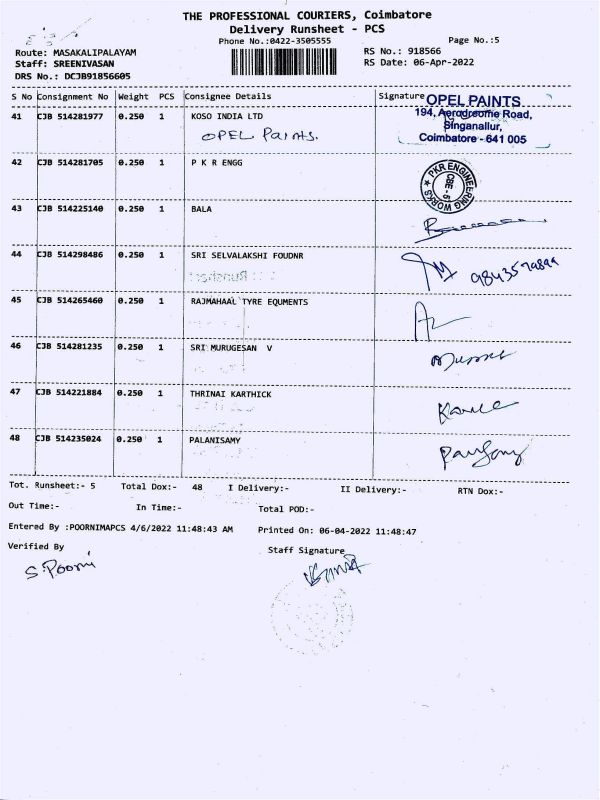 THE PROFESSIONAL COURIERS, Coimbatore
Delivery Runsheet - PCS
Phone No.:0422-3505555
Page No.:5
Route: MASAKALIPALAYAM
RS No.: 918566
Staff: SREENIVASAN
RS Date: 06-Apr-2022
DRS No.: DCJB91856605
S No Consignment No Weight PCS Consignee Details Signature
OPEL PAINTS
194, Aerodrome Road,
Singanallur,
Coimbatore - 641 005
41 CJB 514281977 0.250 1 KOSO INDIA LTD
OPEL Paints.
42 CJB 514281705 0.250 1 P K R ENGG
PKR ENGINEERING WORKS
CBE - 5
43 CJB 514225140 0.250 1 BALA
44 CJB 514298486 0.250 1 SRI SELVALAKSHI FOUDNR
45 CJB 514265460 0.250 1 RAJMAHAAL TYRE EQUMENTS
46 CJB 514281235 0.250 1 SRI MURUGESAN V
47 CJB 514221884 0.250 1 THRINAI KARTHICK
48 CJB 514235024 0.250 1 PALANISAMY
Tot. Runsheet:- 5 Total Dox:- 48 I Delivery:- II Delivery:- RTN Dox:-
Out Time:- In Time:- Total POD:-
Entered By :POORNIMAPCS 4/6/2022 11:48:43 AM Printed On: 06-04-2022 11:48:47
Verified By Staff Signature
S. Poorni